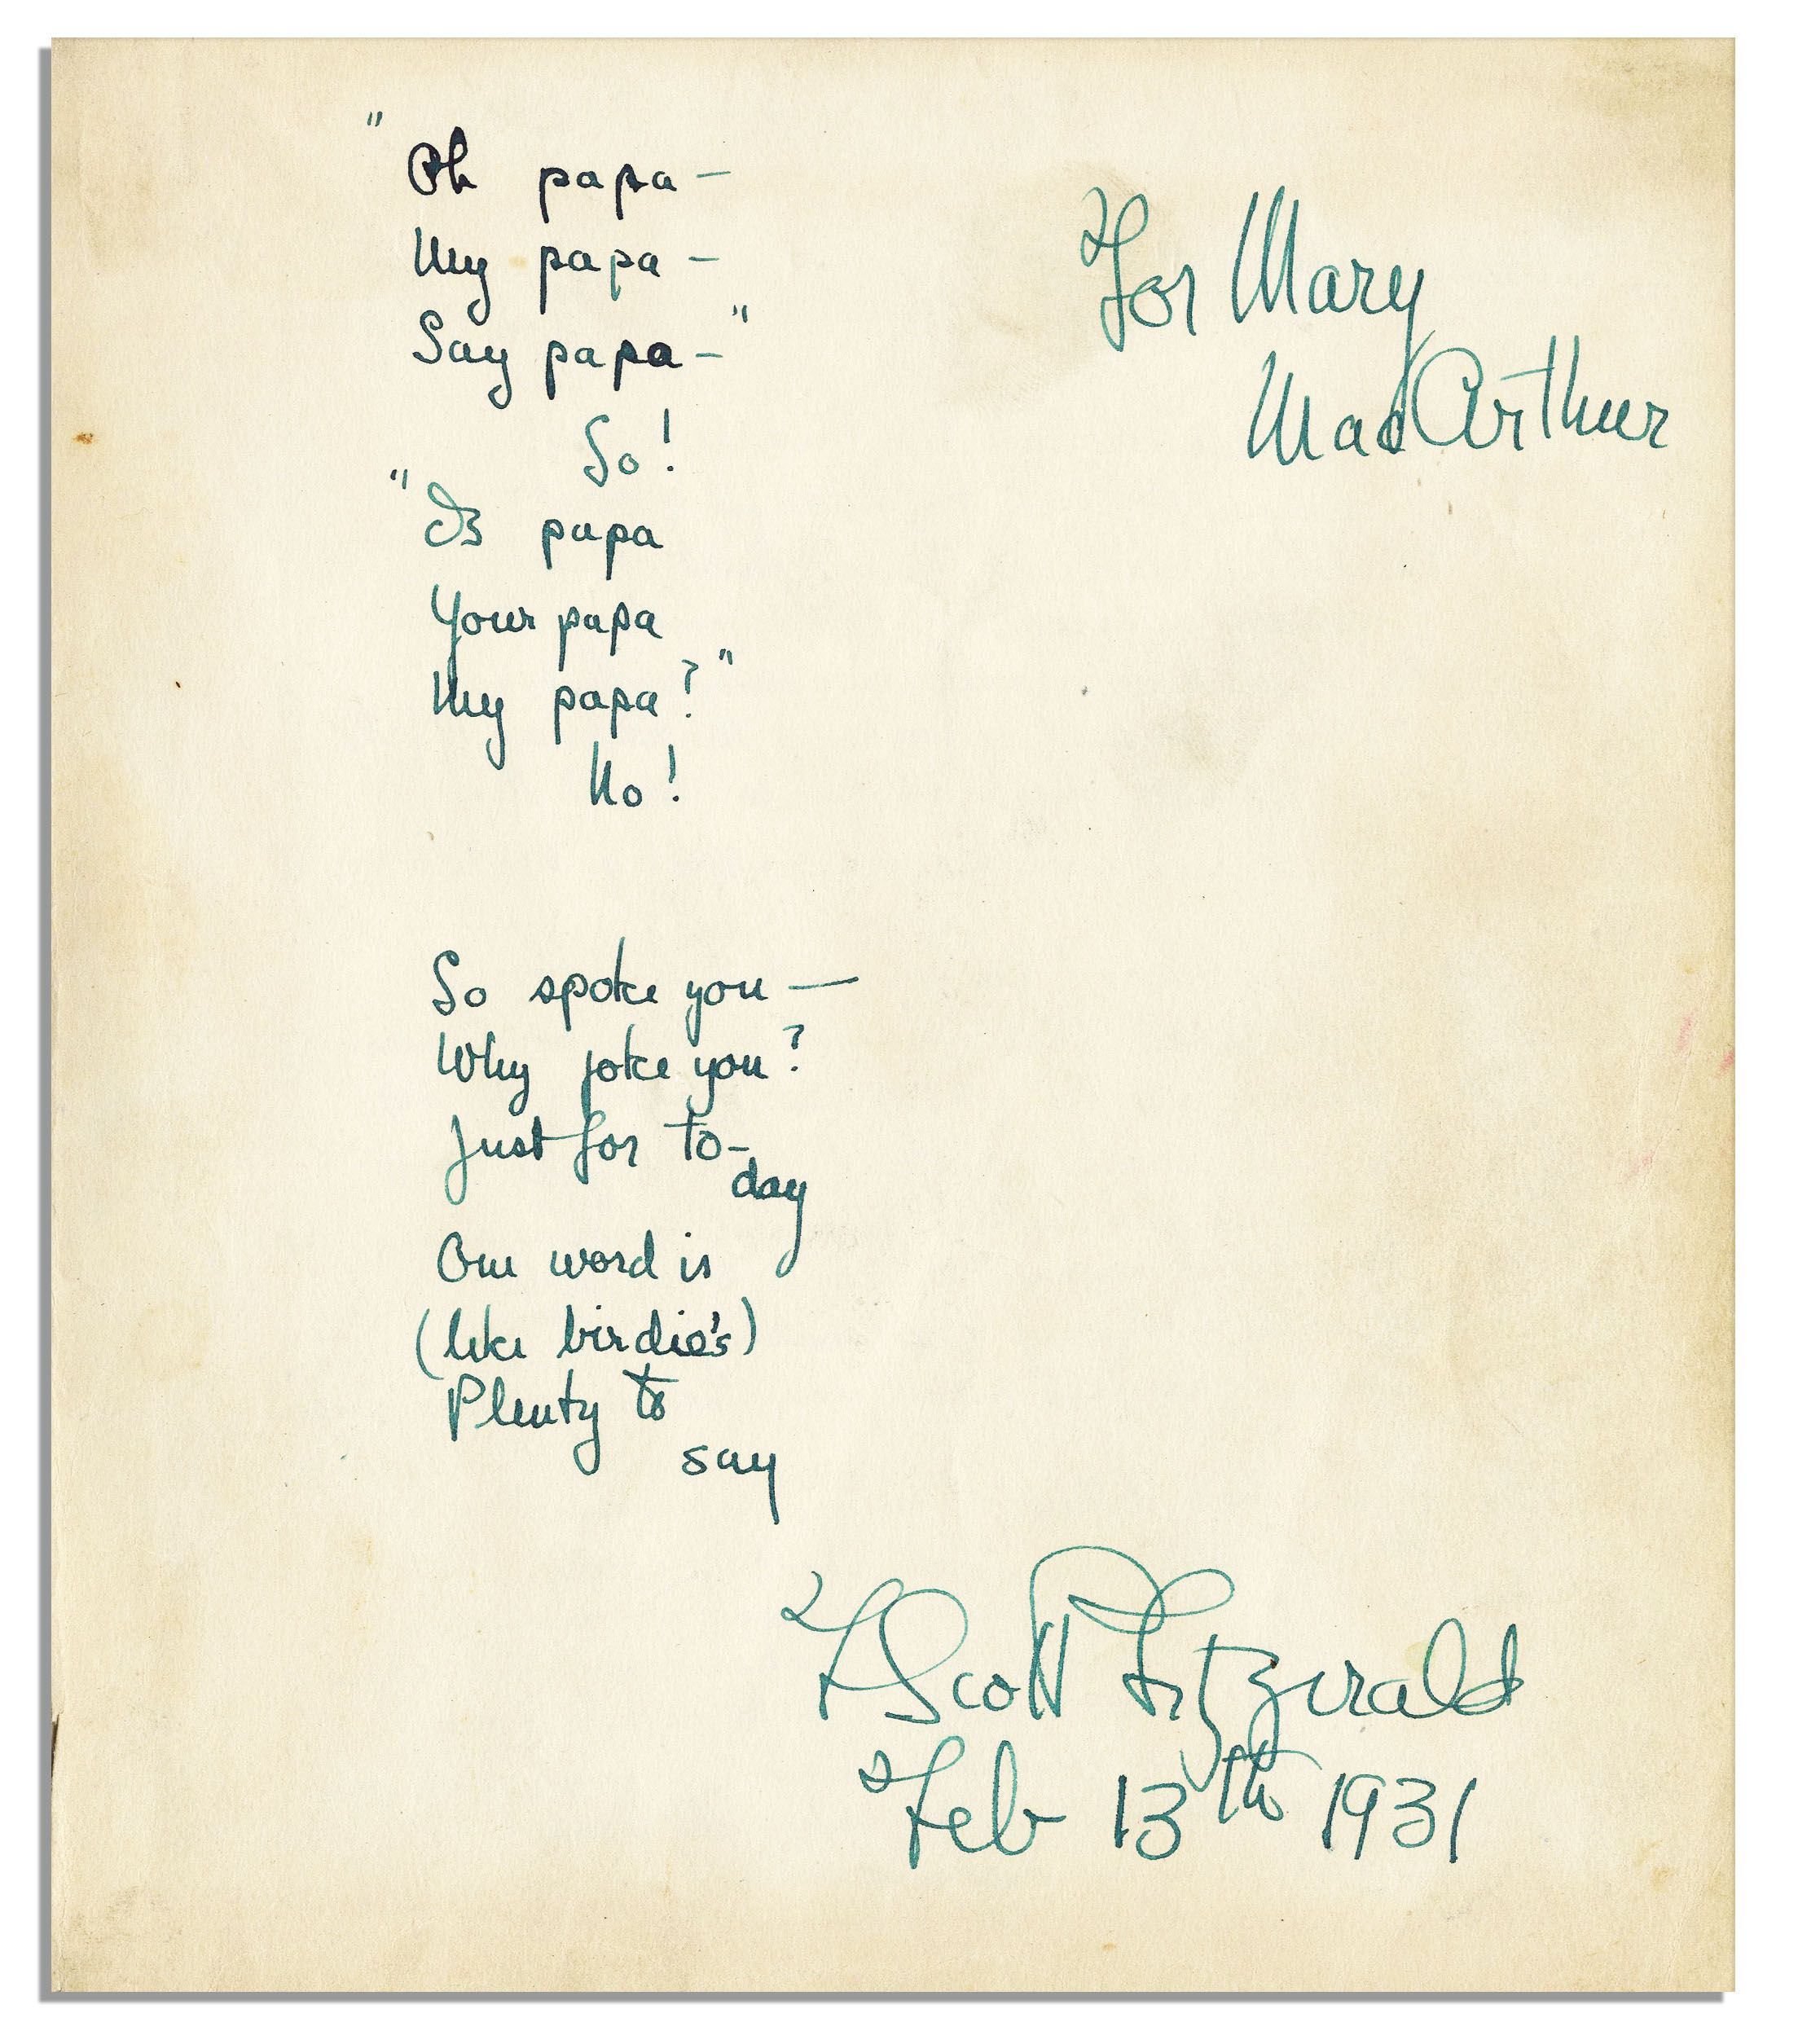 For Mary
MacArthur
"Oh papa —
My papa —
Say papa — "
So!
"Is papa
Your papa
My papa?"
No!
So spoke you —
Why joke you?
Just for to-
day
One word is
(like birdie's)
Plenty to
say
F Scott Fitzgerald
Feb 13th 1931